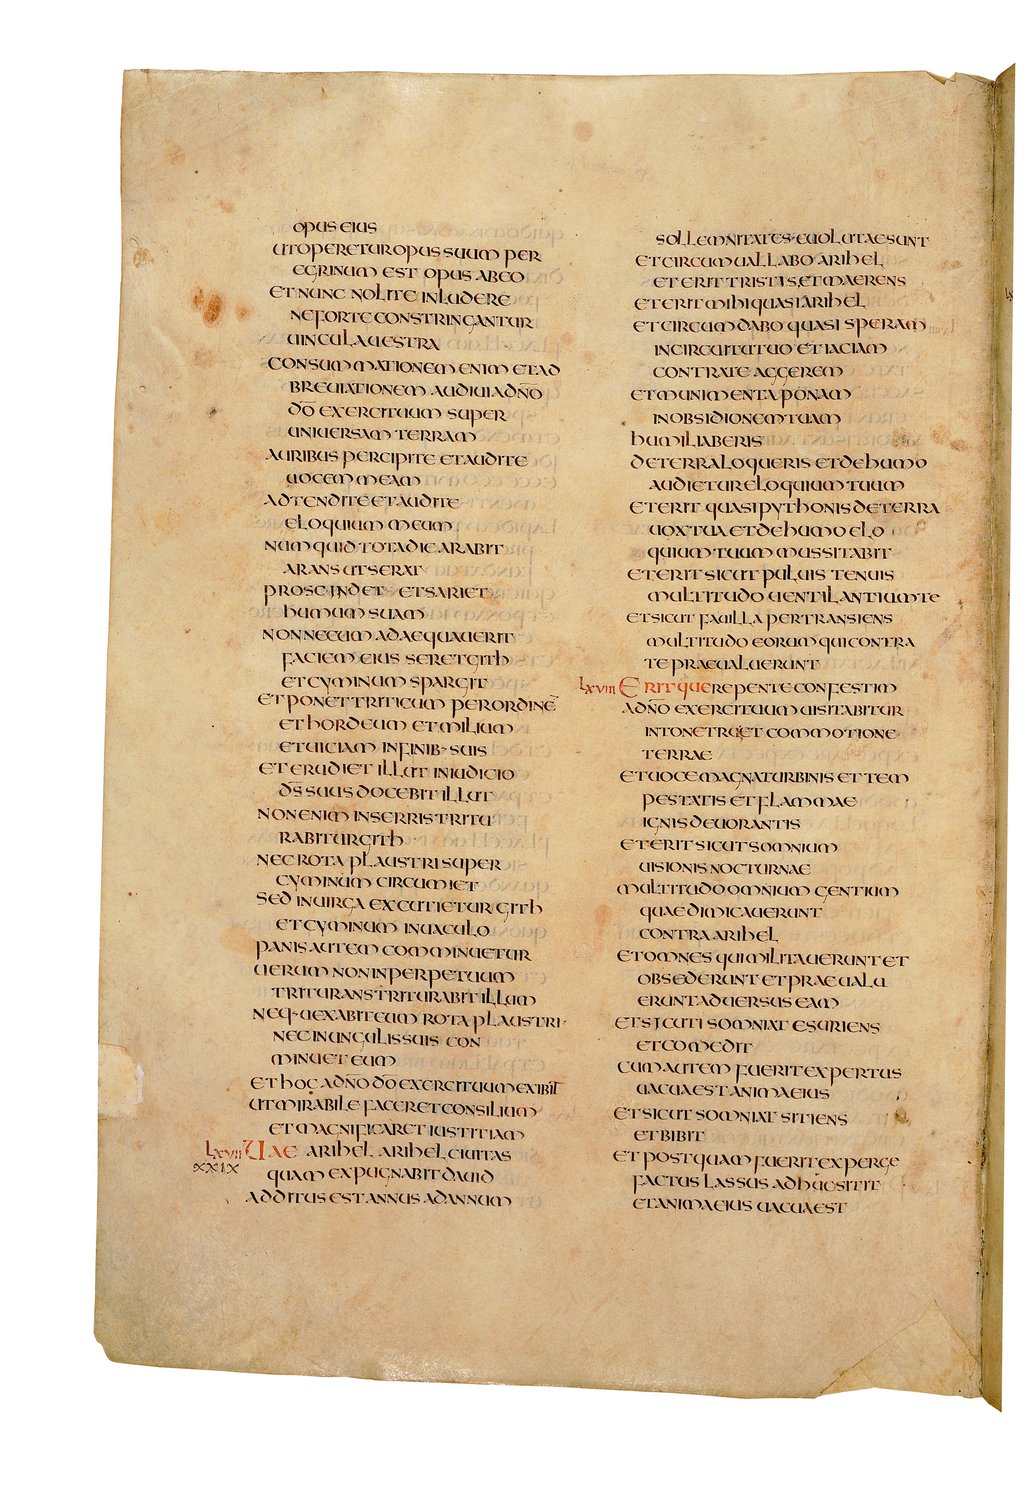 OPUS EIUS
UT OPERETUR OPUS SUUM PER
EGRINUM EST OPUS AB EO
ET NUNC NOLITE INLUDERE
NE FORTE CONSTRINGANTUR
UINCULA UESTRA
CONSUMMATIONEM ENIM ET AD
BREUIATIONEM AUDIUI A DN̄O
DŌ EXERCITUUM SUPER
UNIUERSAM TERRAM
AURIBUS PERCIPITE ET AUDITE
UOCEM MEAM
ADTENDITE ET AUDITE
ELOQUIUM MEUM
NUMQUID TOTA DIE ARABIT
ARANS UT SERAT
PROSCINDET ET SARIET
HUMUM SUAM
NONNE CUM ADAEQUAUERIT
FACIEM EIUS SERET GITH
ET CYMINUM SPARGIT
ET PONET TRITICUM PER ORDINĒ
ET HORDEUM ET MILIUM
ET UICIAM IN FINIB· SUIS
ET ERUDIET ILLUT IN IUDICIO
DS̄ SUUS DOCEBIT ILLUT
NON ENIM IN SERRIS TRITU
RABITUR GITH
NEC ROTA PLAUSTRI SUPER
CYMINUM CIRCUMIET
SED IN UIRGA EXCUTIETUR GITH
ET CYMINUM IN UACULO
PANIS AUTEM COMMINUETUR
UERUM NON IN PERPETUUM
TRITURANS TRITURABIT ILLUM
NEQ· UEXABIT EUM ROTA PLAUSTRI
NEC IN UNGULIS SUIS CON
MINUET EUM
ET HOC A DN̄O DŌ EXERCITUUM EXIBIT
UT MIRABILE FACERET CONSILIUM
ET MAGNIFICARET IUSTITIAM
LXVII UAE ARIHEL ARIHEL CIUITAS
XXIX QUAM EXPUGNABIT DAUID
ADDITUS EST ANNUS AD ANNUM
SOLLEMNITATES EUOLUTAE SUNT
ET CIRCUMUALLABO ARIHEL
ET ERIT TRISTIS ET MAERENS
ET ERIT MIHI QUASI ARIHEL
ET CIRCUMDABO QUASI SPERAM
IN CIRCUITU TUO ET IACIAM
CONTRA TE AGGEREM
ET MUNIMENTA PONAM
IN OBSIDIONEM TUAM
HUMILIABERIS
DE TERRA LOQUERIS ET DE HUMO
AUDIETUR ELOQUIUM TUUM
ET ERIT QUASI PYTHONIS DE TERRA
UOX TUA ET DE HUMO ELO
QUIUM TUUM MUSSITABIT
ET ERIT SICUT PULUIS TENUIS
MULTITUDO UENTILANTIUM TE
ET SICUT FAUILLA PERTRANSIENS
MULTITUDO EORUM QUI CONTRA
TE PRAEUALUERUNT
LXVIII ERITQUE REPENTE CONFESTIM
A DN̄O EXERCITUUM UISITABITUR
IN TONETRU ET COMMOTIONE
TERRAE
ET UOCE MAGNA TURBINIS ET TEM
PESTATIS ET FLAMMAE
IGNIS DEUORANTIS
ET ERIT SICUT SOMNIUM
UISIONIS NOCTURNAE
MULTITUDO OMNIUM GENTIUM
QUAE DIMICAUERUNT
CONTRA ARIHEL
ET OMNES QUI MILITAUERUNT ET
OBSEDERUNT ET PRAEUALU
ERUNT ADUERSUS EAM
ET SICUTI SOMNIAT ESURIENS
ET COMEDIT
CUM AUTEM FUERIT EXPERTUS
UACUA EST ANIMA EIUS
ET SICUT SOMNIAT SITIENS
ET BIBIT
ET POSTQUAM FUERIT EXPERGE
FACTUS LASSUS ADHUC SITIT
ET ANIMA EIUS UACUA EST